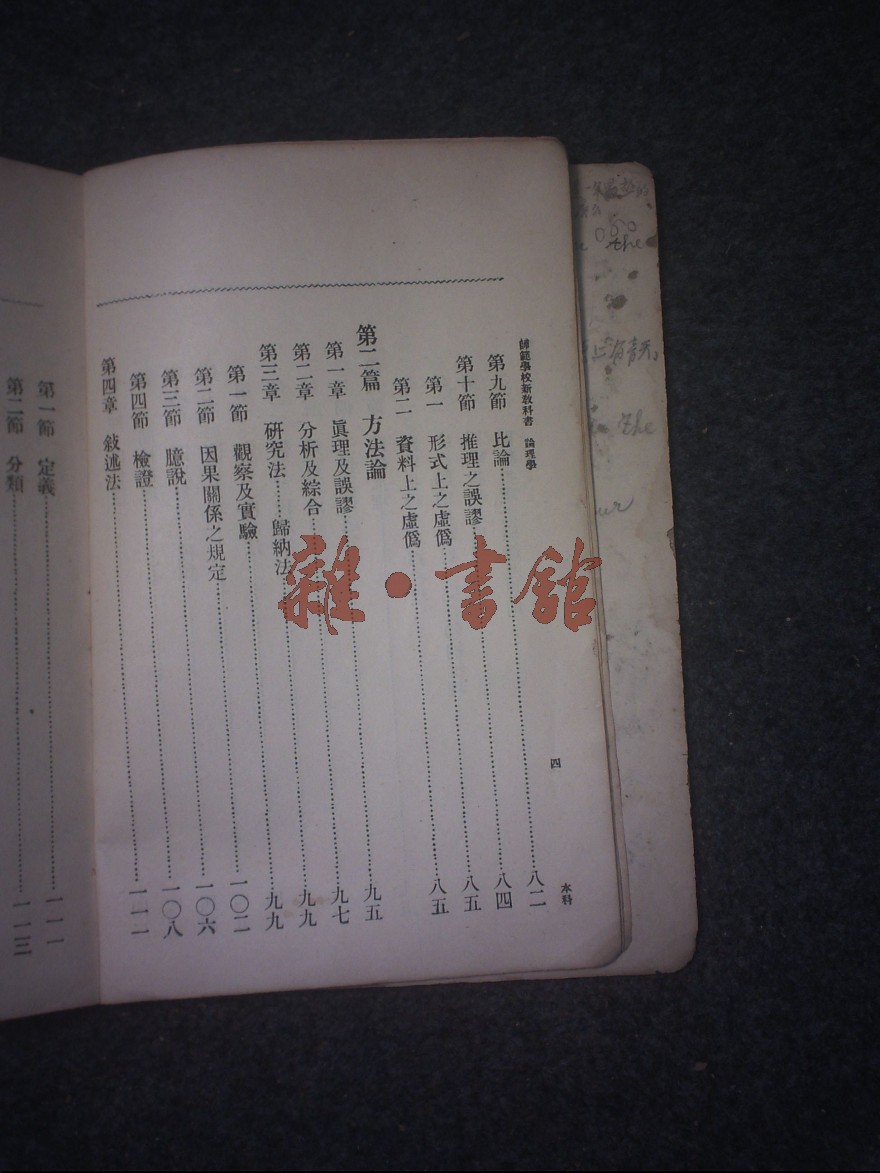 師範學校新教科書 論理學 四 本科
第九節 比論 八二
第十節 推理之誤謬 八四
第一 形式上之虛僞 八五
第二 資料上之虛僞 八五
第二篇 方法論
第一章 眞理及誤謬 九五
第二章 分析及綜合 九七
第三章 研究法 歸納法 九九
第一節 觀察及實驗 九九
第二節 因果關係之規定 一〇二
第三節 臆說 一〇六
第四節 檢證 一〇八
第四章 敍述法 一一一
第一節 定義 一一一
第二節 分類 一一三
雜·書館
the
the